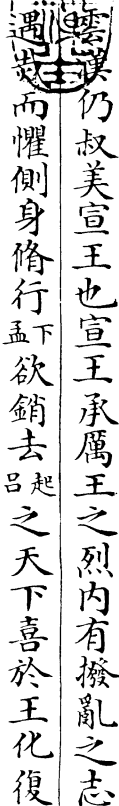 雲漢仍叔美宣王也宣王承厲王之烈内有撥亂之志
遇烖而懼側身脩行下孟欲銷去起呂之天下喜於王化復